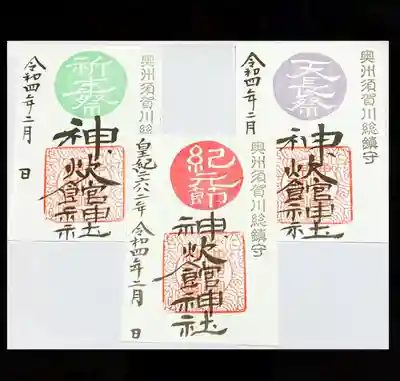 奥州須賀川総
祈年祭
神炊館神社
令和四年二月 日
奥州須賀川総鎮守
天長祭
神炊館神社
令和四年二月
奥州須賀川総鎮守
紀元節
神炊館神社
皇紀二六八二年 令和四年二月 日